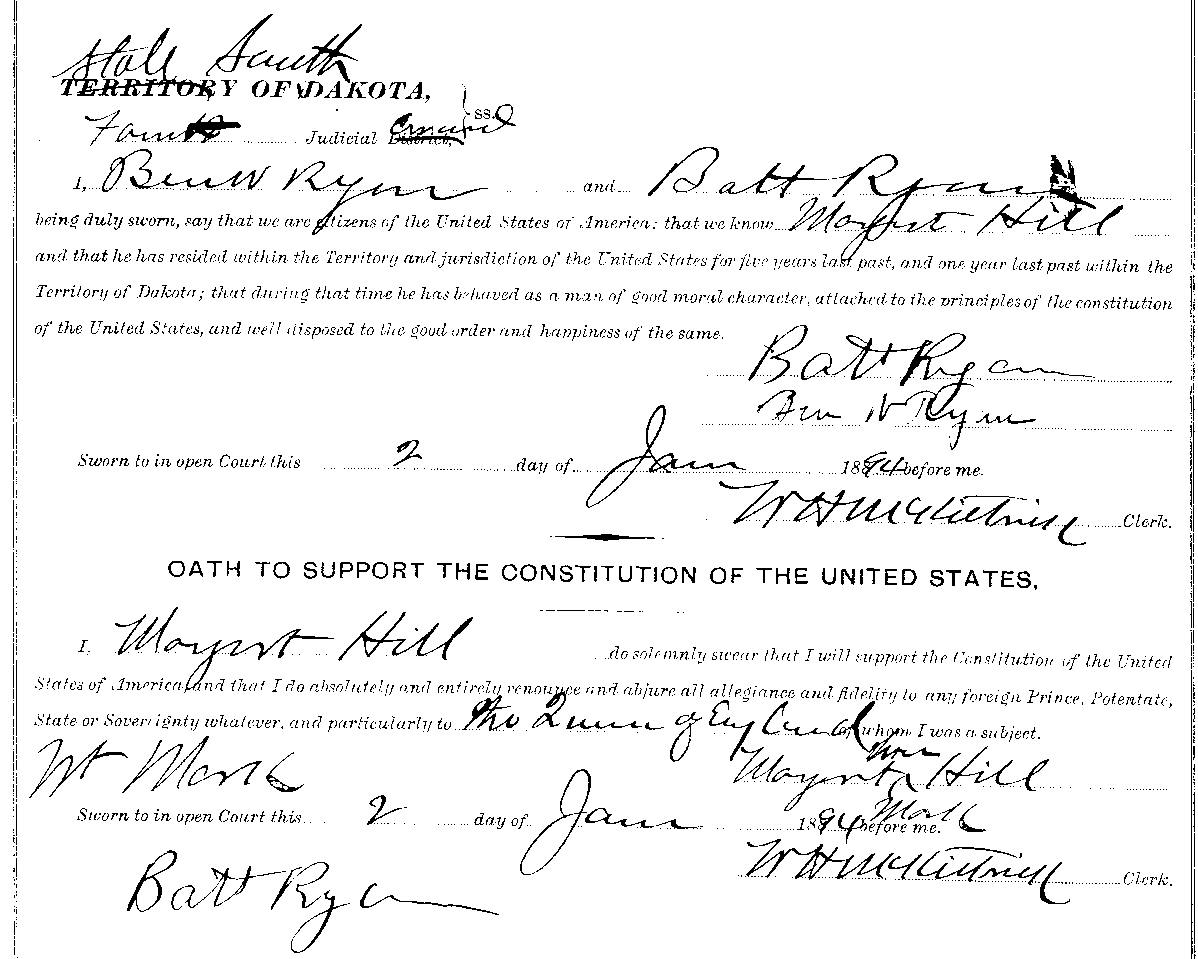 State South
TERRITORY OF DAKOTA,
Fourth Judicial District, ss.
I, Ben W Ryan and Batt Ryan
being duly sworn, say that we are citizens of the United States of America; that we know Hill
and that he has resided within the Territory and jurisdiction of the United States for five years last past, and one year last past within the
Territory of Dakota; that during that time he has behaved as a man of good moral character, attached to the principles of the constitution
of the United States, and well disposed to the good order and happiness of the same.
Batt Ryan
Ben W Ryan
Sworn to in open Court this 2 day of Jan 1894 before me.
W H McKittrick Clerk.
OATH TO SUPPORT THE CONSTITUTION OF THE UNITED STATES.
I, Hill do solemnly swear that I will support the Constitution of the United
States of America, and that I do absolutely and entirely renounce and abjure all allegiance and fidelity to any foreign Prince, Potentate,
State or Sovereignty whatever, and particularly to the Queen of England of whom I was a subject.
Wt Mark Hill
Sworn to in open Court this 2 day of Jan 1894 before me. Mark
W H McKittrick Clerk.
Batt Ryan